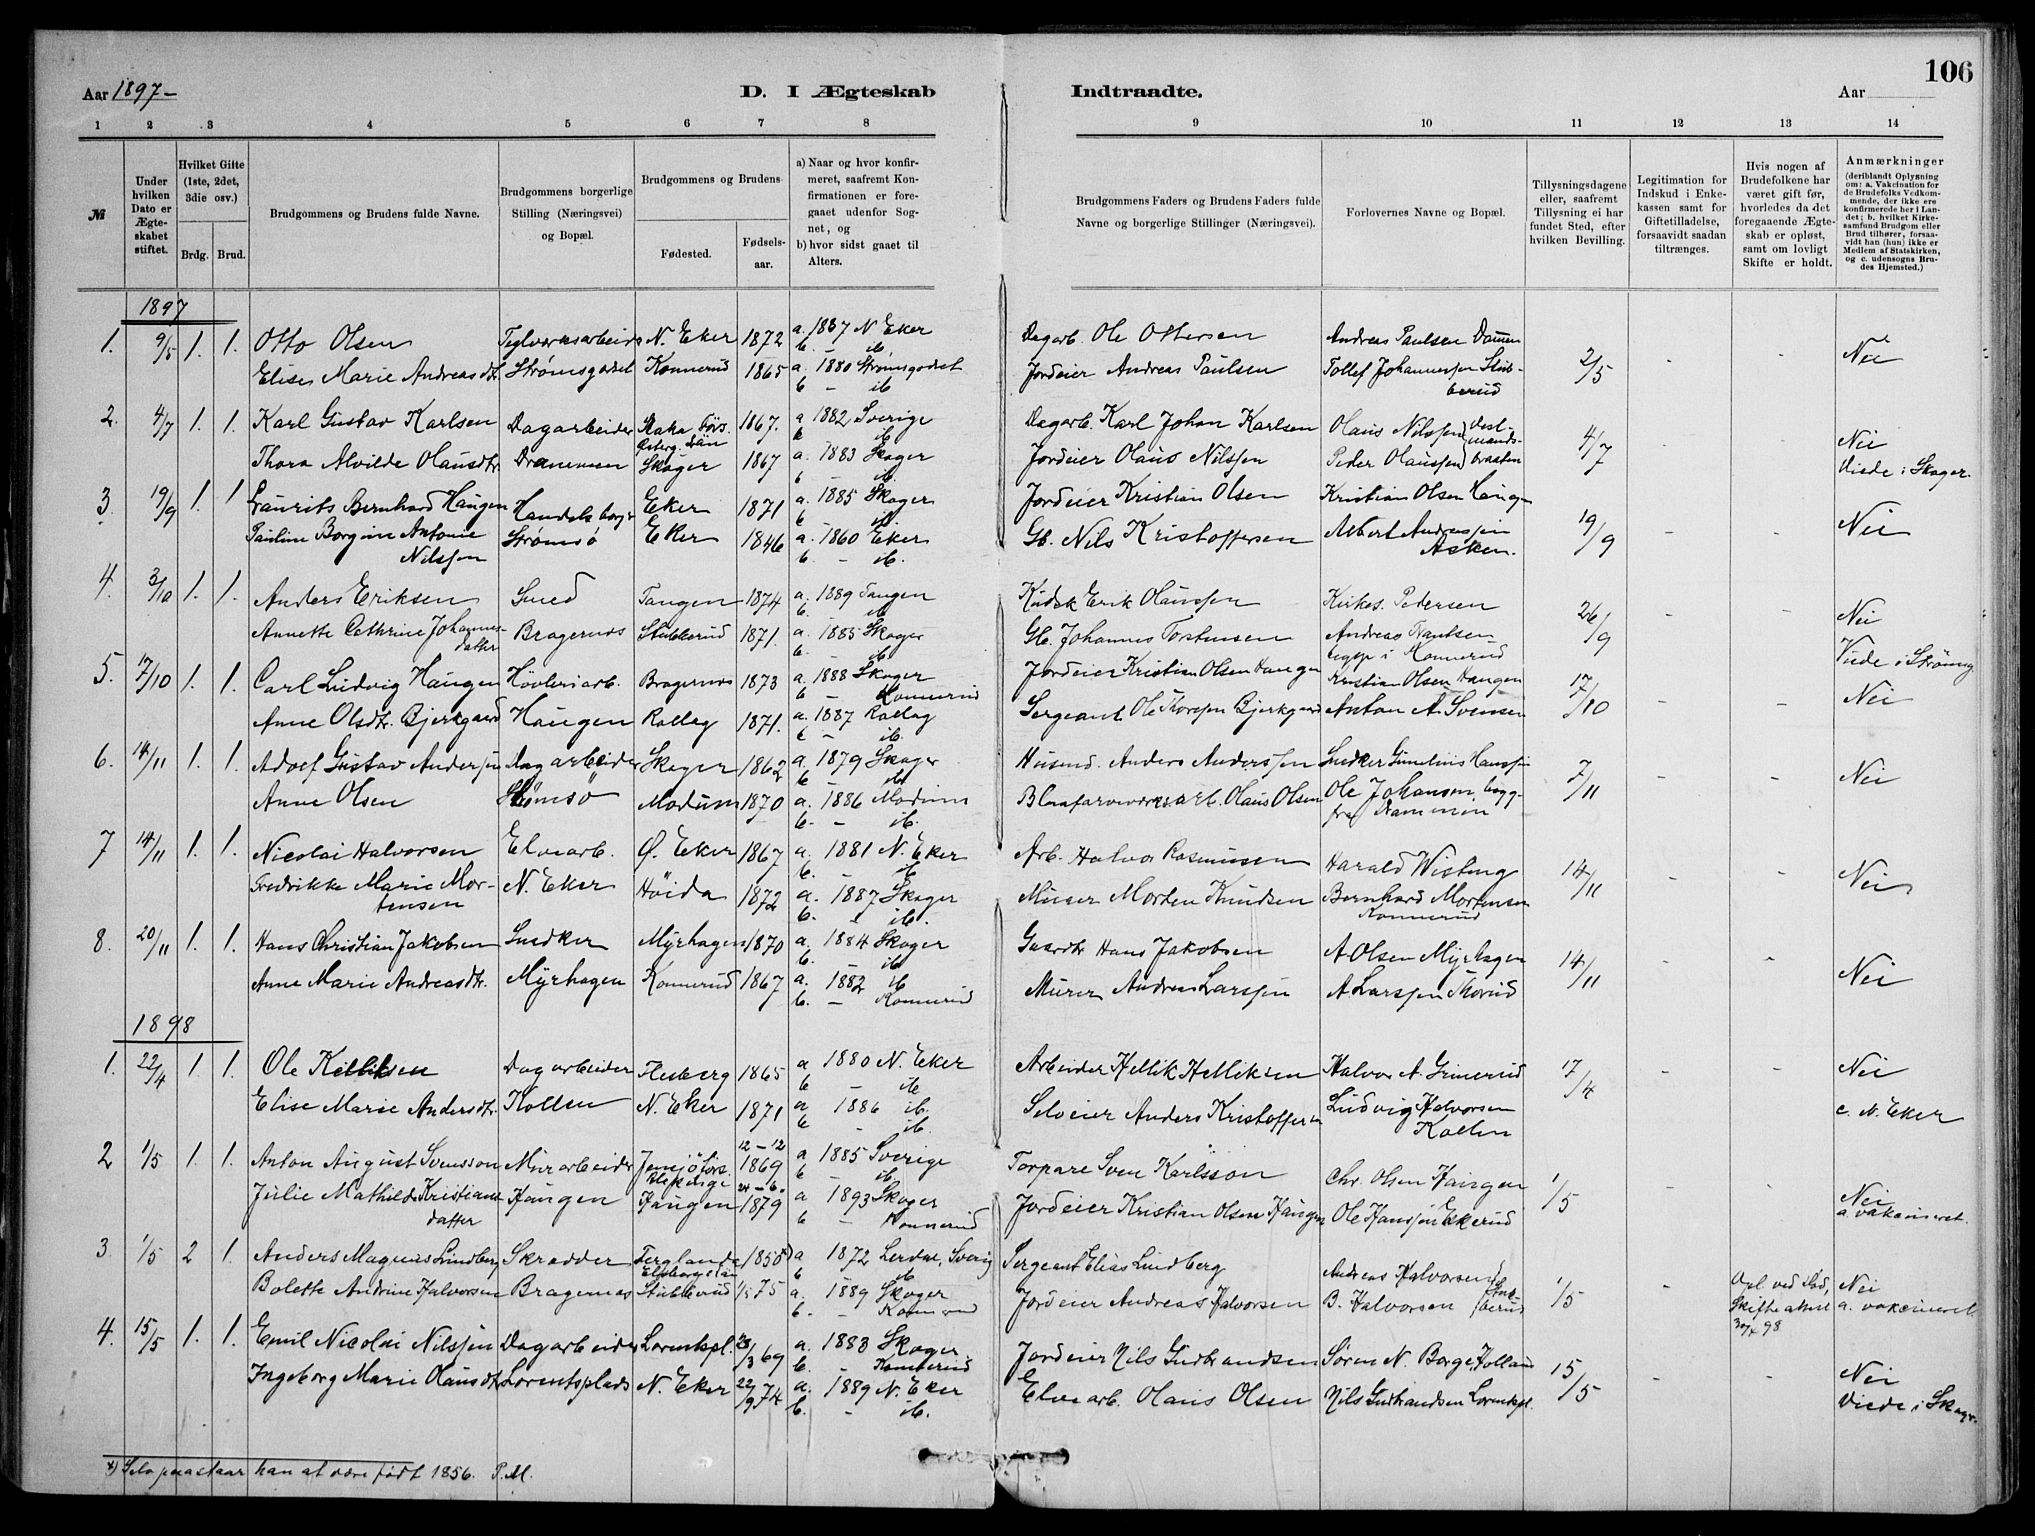 106
Aar 1897- D. I Ægteskab Indtraadte. Aar
1 2 3 4 5 6 7 8 9 10 11 12 13 14
№
Under hvilken Dato er Ægteskabet stiftet.
Hvilket Gifte (1ste, 2det, 3die osv.)
Brdg. Brud.
Brudgommens og Brudens fulde Navne.
Brudgommens borgerlige Stilling (Næringsvei) og Bopæl.
Brudgommens og Brudens
Fødested. Fødselsaar.
a) Naar og hvor konfirmeret, saafremt Konfirmationen er foregaaet udenfor Sognet, og
b) hvor sidst gaaet til Alters.
Brudgommens Faders og Brudens Faders fulde Navne og borgerlige Stillinger (Næringsvei).
Forlovernes Navne og Bopæl.
Tillysningsdagene eller, saafremt Tillysning ei har fundet Sted, efter hvilken Bevilling.
Legitimation for Indskud i Enkekassen samt for Giftetilladelse, forsaavidt saadan tiltrænges.
Hvis nogen af Brudefolkene har været gift før, hvorledes da det foregaaende Ægteskab er opløst, samt om lovligt Skifte er holdt.
Anmærkninger (deriblandt Oplysning om: a. Vakcination for de Brudefolks Vedkommende, der ikke ere konfirmerede her i Landet; b. hvilket Kirkesamfund Brudgom eller Brud tilhører, forsaavidt han (hun) ikke er Medlem af Statskirken, og c. udensogns Brudes Hjemsted.)
1897
1. 9/5 1. 1. Otto Olsen Teglværksarbeider N. Eker 1872 a. 1887 N Eker b. - ib. Dagarb. Ole Ottersen Andreas Paulsen 2/5 - - Nei
Elise Marie Andreasdtr. Strømsgodset Konnerud 1865 a. 1880 Strømsgodset b - ib. Jordeier Andreas Paulsen Tollef Johannessen Stubberud
2. 4/7 1. 1. Karl Gustav Karlsen Dagarbeider 1867. a 1882 Sverige b ib. Dagarb. Karl Johan Karlsen Olaus Nilssen 4/7 - - Nei
Thora Alvilde Olausdtr. Drammen Skoger 1867 a. 1883 Skoger b ib. Jordeier Olaus Nilssen Peder Olaussen Viede i Skoger
3. 19/9 1. 1. Laurits Bernhard Haugen Handelsborger Eker 1871 a. 1885 Skoger b ib Jordeier Kristian Olsen Kristian Olsen Haugen 19/9 - - Nei
Pauline Borgine Antonie Nilssen Strømsø Eker 1846 a. 1860 Eker b. - ib. Gb. Nils Kristoffersen Albert Andreassen Asken.
4. 3/10 1. 1. Anders Eriksen Smed Tangen 1874 a. 1889 Tangen b. ib Kudsk Erik Olaussen Kirkes. Pedersen 26/9 - - Nei
Annette Cathrine Johannesdatter Bragernes Stubberud 1871. a. 1885 Skoger b. - ib Gb. Johannes Tostensen Andreas Konnerud Viede i
5. 17/10 1. 1. Carl Ludvig Haugen Høvleriarb. Bragernes 1873 a. 1888 Skoger b - Konnerud Jordeier Kristian Olsen Haugen Kristian Olsen Haugen 17/10 - - Nei
Anne Olsdtr. Bjerkgaard Haugen Rollag 1871. a. 1887 Rollag b - ib. Sergeant Ole Thorsen Bjerkgaard Anton A. Svensen
6. 14/11 1. 1. Adolf Gustav Andersen Dagarbeider Skoger 1862 a. 1879 Skoger b - ib Husmd. Anders Anderssen Snedker Hanssen 7/11 - - Nei
Anne Olsen Strømsø Modum 1870 a. 1886 Modum b. - ib. Blaafarveværksarb. Olaus Olsen Ole Johansen
7 14/11 1. 1. Nicolai Halvorsen Elvearb. Ø. Eker 1867 a. 1881 N. Eker b. ib Arb. Halvor Rasmussen Harald Wisting 14/11 - - Nei
Fredrikke Marie Mortensen N. Eker Høida 1872 a. 1887 Skoger b. ib. Murer Morten Knudsen Bernhard Mortensen Konnerud
8. 20/11 1. 1. Hans Christian Jakobsen Snedker Myrhagen 1870 a. 1884 Skoger b. ib Gaardbr. Hans Jakobsen A Olsen Myrhagen 14/11 - - Nei
Anne Marie Andreasdtr. Myrhagen Konnerud 1867 a. 1882 ib b. - Konnerud Murer Andreas Larssen A Larssen
1898
1. 22/4 1. 1. Ole Helliksen Dagarbeider Flesberg 1865 a 1880 N. Eker b - ib Arbeider Hellik Helliksen Halvor A. Grinerud 17/4 - - Nei
Elise Marie Andersdtr. Kollen N. Eker 1871 a 1886 ib. b ib. Selveier Anders Kristoffersen Ludvig Halvorsen Kollen c. N. Eker
2 1/5 1. 1. Anton August Svensson Murarbeider 12-12 1869 a 1885 Sverige b ib. Torpare Sven Karlsson Chr. Olsen Haugen 1/5 - - Nei
Julie Mathilde Kristiansdatter Haugen Haugen 24-6. 1879 a 1893 Skoger b - Konnerud Jordeier Kristian Olsen Haugen Ole Hanssen Ekerud a vakcineret.
3. 1/5 2 1. Anders Magnus Lundberg Skrædder 1850*) a 1872 Lerdal, Sverig b ib Sergeant Elias Lindberg Andreas Halvorsen 1/5 - Opl ved død, Skifte 98 Nei
Bolette Andrine Halvorsen Bragernes Stubberud 75 a. 1889 Skoger b. - Konnerud Jordeier Andreas Halvorsen B. Halvorsen Stubberud a. vakcineret
4. 15/5 1. 1. Emil Nicolai Nilssen Dagarbeider Lorentspl. 28/3 69 a. 1883 Skoger b. - Konnerud Jordeier Nils Gulbrandsen Søren N. Borge, Holland 15/5 - - Nei
Ingeborg Marie Olausdtr. Lorentsplads N. Eker 22/9 74 a. 1889 N. Eker b. - ib. Elvearb. Olaus Olsen Nils Gulbrandsen Lorentspl. Viede i Skoger
*) Selv paastaar han at være født 1856. P.M.